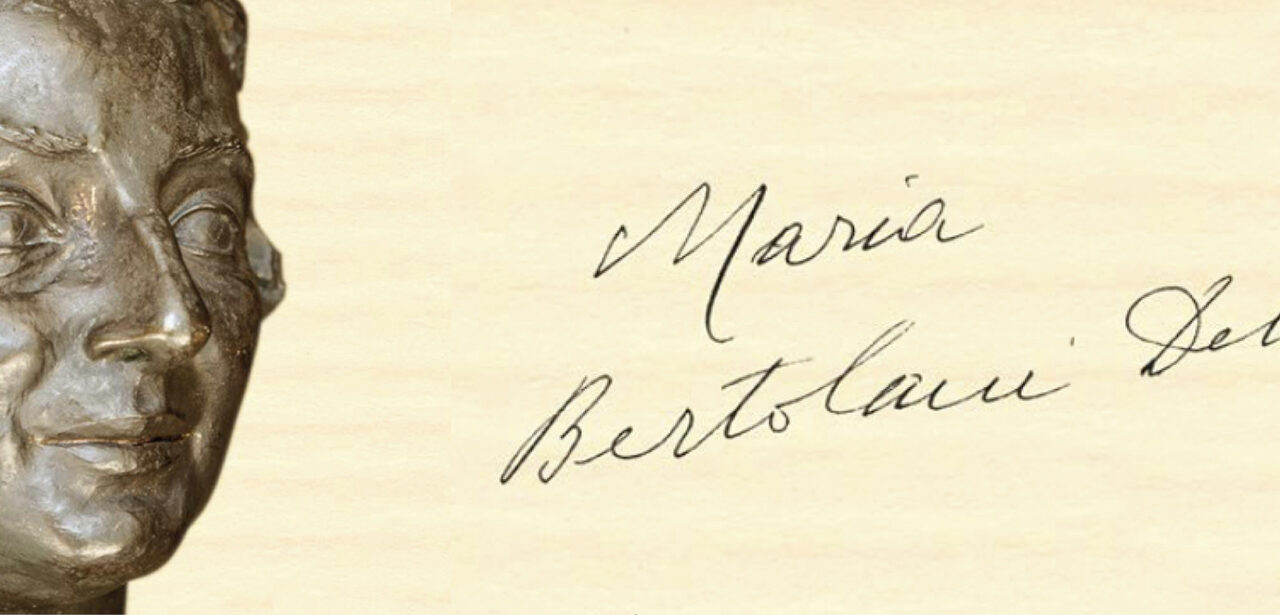 Maria
Bertolani Del